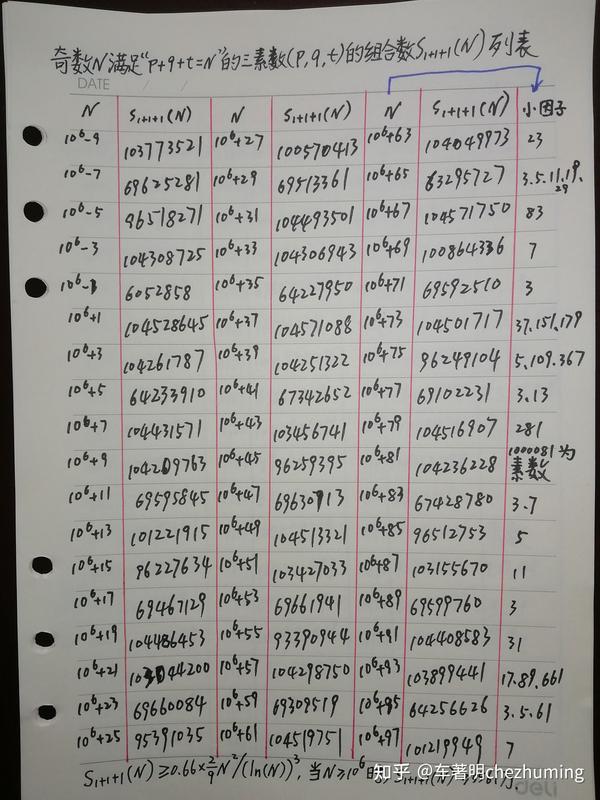 奇数N满足"p+q+t=N"的三素数(p,q,t)的组合数S₁₊₁₊₁(N)列表
DATE / /
N S₁₊₁₊₁(N) N S₁₊₁₊₁(N) N S₁₊₁₊₁(N) 小因子
10⁶-9 103773521 10⁶+27 100570413 10⁶+63 104049973 23
10⁶-7 69625281 10⁶+29 69513361 10⁶+65 63295727 3.5.11.19.29
10⁶-5 96518271 10⁶+31 104493501 10⁶+67 104571750 83
10⁶-3 104308725 10⁶+33 104306943 10⁶+69 100864336 7
10⁶-1 6052858 10⁶+35 64227950 10⁶+71 69592510 3
10⁶+1 104528645 10⁶+37 104571088 10⁶+73 104501717 37.151.179
10⁶+3 104261787 10⁶+39 104251322 10⁶+75 96249104 5.109.367
10⁶+5 64233910 10⁶+41 67342652 10⁶+77 69102231 3.13
10⁶+7 104431571 10⁶+43 103456741 10⁶+79 104516907 281
10⁶+9 104209763 10⁶+45 96259395 10⁶+81 104236228 1000081为素数
10⁶+11 69595845 10⁶+47 69630713 10⁶+83 67428780 3.7
10⁶+13 101221915 10⁶+49 104513321 10⁶+85 96512753 5
10⁶+15 96227634 10⁶+51 103427033 10⁶+87 103155670 11
10⁶+17 69467129 10⁶+53 69661941 10⁶+89 69599760 3
10⁶+19 104486453 10⁶+55 93390944 10⁶+91 104408583 31
10⁶+21 103044200 10⁶+57 104298750 10⁶+93 103899441 17.89.661
10⁶+23 69660084 10⁶+59 69309519 10⁶+95 64256626 3.5.61
10⁶+25 95391035 10⁶+61 104519751 10⁶+97 101219949 7
S₁₊₁₊₁(N)≥0.66×2/9N²/(ln(N))³, 当N≥10⁶
知乎 @车著明chezhuming
deli